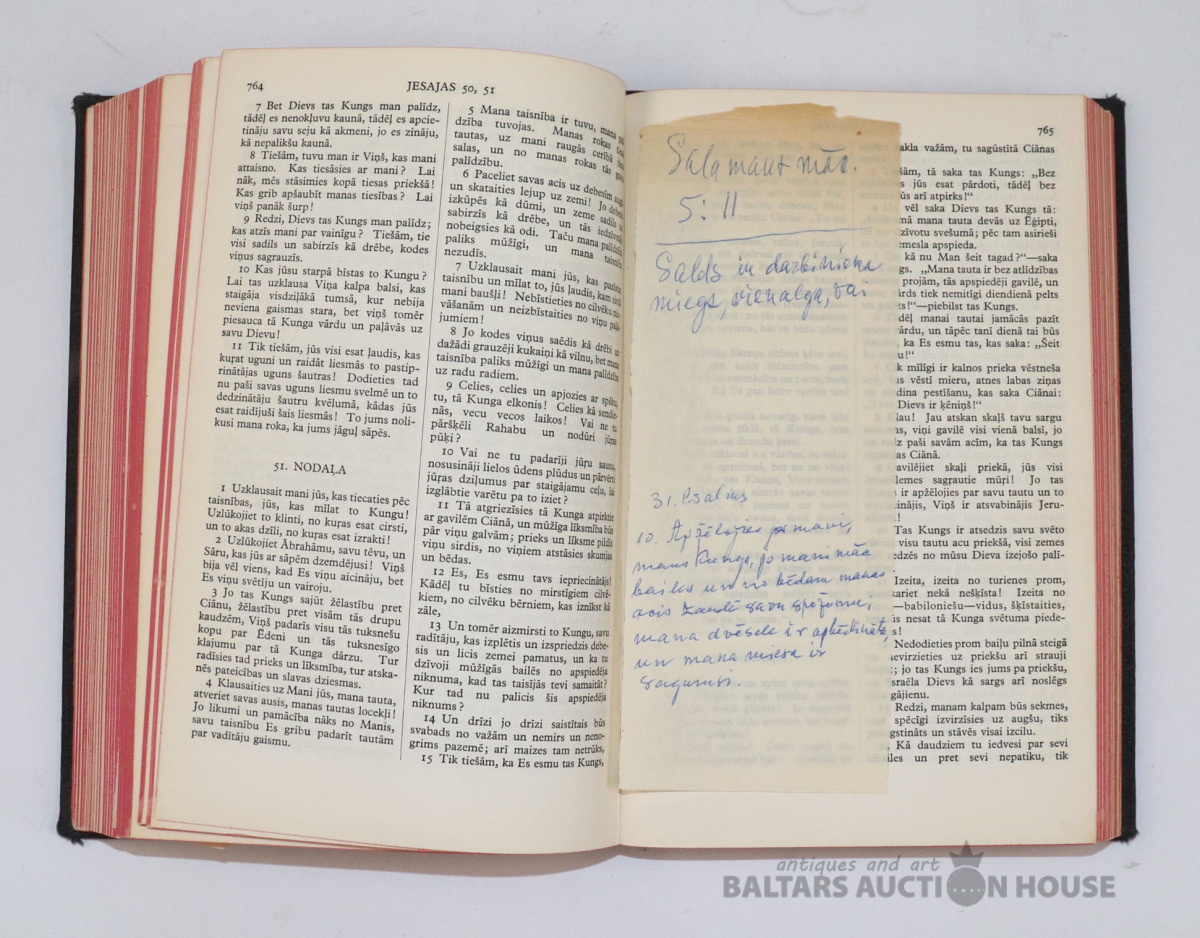 764
JESAJAS 50, 51
7 Bet Dievs tas Kungs man palīdz,
tādēļ es nenokļuvu kaunā, tādēļ es apcie-
tināju savu seju kā akmeni, jo es zināju,
kā nepalikšu kaunā.
8 Tiešām, tuvu man ir Viņš, kas mani
attaisno. Kas tiesāsies ar mani? Lai
nāk, mēs stāsimies kopā tiesas priekšā!
Kas grib apšaubīt manas tiesības? Lai
viņš panāk šurp!
9 Redzi, Dievs tas Kungs man palīdz;
kas atzīs mani par vainīgu? Tiešām, tie
visi sadils un sabirzīs kā drēbe, kodes
viņus sagrauzīs.
10 Kas jūsu starpā bīstas to Kungu?
Lai tas uzklausa Viņa kalpa balsi, kas
staigāja visdziļākā tumsā, kur nebija
neviena gaismas stara, bet viņš tomēr
piesauca tā Kunga vārdu un paļāvās uz
savu Dievu!
11 Tik tiešām, jūs visi esat ļaudis, kas
kuŗat uguni un raidāt liesmās to pastip-
rinātājas uguns šautras! Dodieties tad
nu paši savas uguns liesmu svelmē un to
dedzinātāju šautru kvēlumā, kādas jūs
esat raidījuši šais liesmās! To jums noli-
kusi mana roka, ka jums jāguļ sāpēs.
51. NODAĻA
1 Uzklausait mani jūs, kas tiecaties pēc
taisnības, jūs, kas mīlat to Kungu!
Uzlūkojiet to klinti, no kuŗas esat cirsti,
un to akas dzīli, no kuŗas esat izrakti!
2 Uzlūkojiet Ābrahāmu, savu tēvu, un
Sāru, kas jūs ar sāpēm dzemdējusi! Viņš
bija vēl viens, kad Es viņu aicināju, bet
Es viņu svētīju un vairoju.
3 Jo tas Kungs sajūt žēlastību pret
Ciānu, žēlastību pret visām tās drupu
kaudzēm, Viņš padarīs visu tās tuksnešu
kopu par Ēdeni un tās tuksnesīgo
klajumu par tā Kunga dārzu. Tur
radīsies tad prieks un līksmība, tur atska-
nēs pateicības un slavas dziesmas.
4 Klausaities uz Mani jūs, mana tauta,
atveriet savas ausis, manas tautas locekļi!
Jo likumi un pamācība nāks no Manis,
savu taisnību Es gribu padarīt tautām
par vadītāju gaismu.
5 Mana taisnība ir tuvu, mana pa-
dzība tuvojas. Manas rokas
tautas, uz mani raugās cerībā
salas, un no manas rokas tās
palīdzību.
6 Paceliet savas acis uz debesīm augšu
un skataities lejup uz zemi! Jo debesis
izkūpēs kā dūmi, un zeme sadils
sabirzīs kā drēbe, un tās iedzīvotāji
nobeigsies kā odi. Taču mana palīdzība
paliks mūžīgi, un mana taisnība
nezudīs.
7 Uzklausait mani jūs, kas pazīstat
taisnību un mīlat to, jūs ļaudis, kam sirdī
mani baušļi! Nebīstieties no cilvēku
vāšanām un neizbīstaities no viņu
jumiem!
8 Jo kodes viņus saēdīs kā drēbi un
dažādi grauzēji kukaiņi kā vilnu, bet mana
taisnība paliks mūžīgi un mana palīdzība
uz radu radiem.
9 Celies, celies un apjozies ar spēku,
tu, tā Kunga elkonis! Celies kā sendie-
nās, vecu vecos laikos! Vai ne tu
pāršķēli Rahabu un nodūri jūras
pūķi?
10 Vai ne tu padarīji jūŗu sausu,
nosusināji lielos ūdens plūdus un pārvērti
jūŗas dziļumus par staigājamu ceļu, lai
izglābtie varētu pa to iziet?
11 Tā atgriezīsies tā Kunga atpirktie
ar gavilēm Ciānā, un mūžīga līksmība būs
pār viņu galvām; prieks un līksme pildīs
viņu sirdis, no viņiem atstāsies skumjas
un bēdas.
12 Es, Es esmu tavs iepriecinātājs!
Kādēļ tu bīsties no mirstīgiem cilvē-
kiem, no cilvēku bērniem, kas iznīkst kā
zāle,
13 Un tomēr aizmirsti to Kungu, savu
radītāju, kas izplētis un izspriedis debe-
sis un licis zemei pamatus, un ka tu
dzīvoji mūžīgās bailēs no apspiedēja
niknuma, kad tas taisījās tevi samaitāt?
Kur tad nu palicis šis apspiedēja
niknums?
14 Un drīzi jo drīzi saistītais būs
svabads no važām un nemirs un neno-
grims pazemē; arī maizes tam netrūks,
15 Tik tiešām, ka Es esmu tas Kungs,
Salamans māc.
5:11
Salds ir darbinieka
miegs, vienalga, vai
31. Psalms
10. Apžēlojies par mani,
mans Kungs, jo mani māc
bailes un no bēdām manas
acis zaudē savu spožumu;
mana dvēsele ir apbēdināta,
un mana miesa ir
sagurusi.
765
akla važām, tu sagūstītā Ciānas
šām, tā saka tas Kungs: „Bez
s jūs esat pārdoti, tādēļ bez
ūs arī atpirks!“
vēl saka Dievs tas Kungs tā:
mā mana tauta devās uz Ēģipti,
zīvotu svešumā; pēc tam asirieši
emesla apspieda.
kā nu Man šeit tagad?“—saka
gs. „Mana tauta ir bez atlīdzības
projām, tās apspiedēji gavilē, un
ārds tiek nemitīgi diendienā pelts
ts!“—piebilst tas Kungs.
dēļ manai tautai jamācās pazīt
ārdu, un tāpēc tanī dienā tai būs
, ka Es esmu tas, kas saka: „Šeit
u!“
k mīlīgi ir kalnos prieka vēstneša
as vēstī mieru, atnes labas ziņas
dina pestīšanu, kas saka Ciānai:
Dievs ir ķēniņš!“
Klau! Jau atskan skaļš tavu sargu
ns, viņi gavilē visi vienā balsī, jo
dz paši savām acīm, ka tas Kungs
as Ciānā.
avilējiet skaļi priekā, jūs visi
lemes sagrautie mūŗi! Jo tas
s ir apžēlojies par savu tautu un to
zinājis, Viņš ir atsvabinājis Jeru-
!
Tas Kungs ir atsedzis savu svēto
visu tautu acu priekšā, visi zemes
edzēs no mūsu Dieva izejošo palī-
Izeita, izeita no turienes prom,
kariet nekā nešķīsta! Izeita no
—babiloniešu—vidus, šķīstaities,
ūs nesat tā Kunga svētuma piede-
s!
Nedodieties prom baiļu pilnā steigā
nevirzieties uz priekšu arī strauji
t; jo tas Kungs ies jums pa priekšu,
sraēla Dievs kā sargs arī noslēgs
gājienu.
Redzi, manam kalpam būs sekmes,
spēcīgi izvirzīsies uz augšu, tiks
gstināts un stāvēs visai izcilu.
Kā daudziem tu iedvesi par sevi
iles un pret sevi nepatiku, tik
antiques and art
BALTARS AUCTION HOUSE